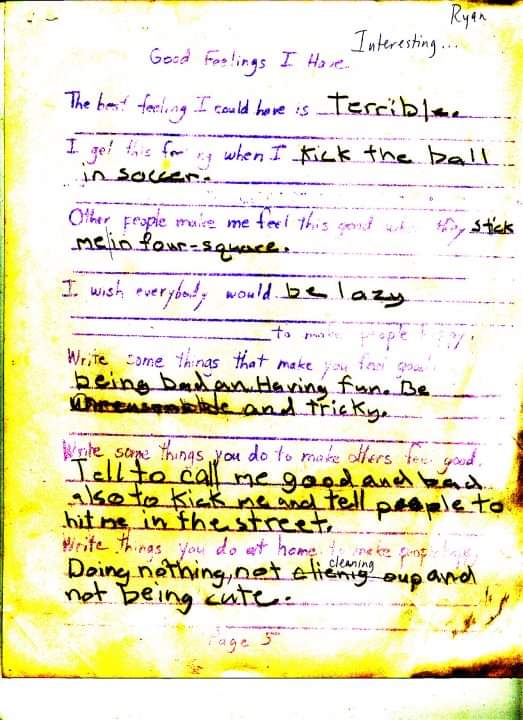 Ryan
Interesting...
Good Feelings I Have
The best feeling I could have is Terrible.
I get this feeling when I kick the ball
in soccer.
Other people make me feel this good when they stick
me in four-square.
I wish everybody would be lazy
to make people happy.
Write some things that make you feel good.
being bad an Having fun. Be
and Tricky.
Write some things you do to make others feel good.
Tell to call me good and bad
also to kick me and tell people to
hit me in the street.
Write things you do at home to make people happy
cleaning
Doing nothing, not clienig oup and
not being cute.
Page 5